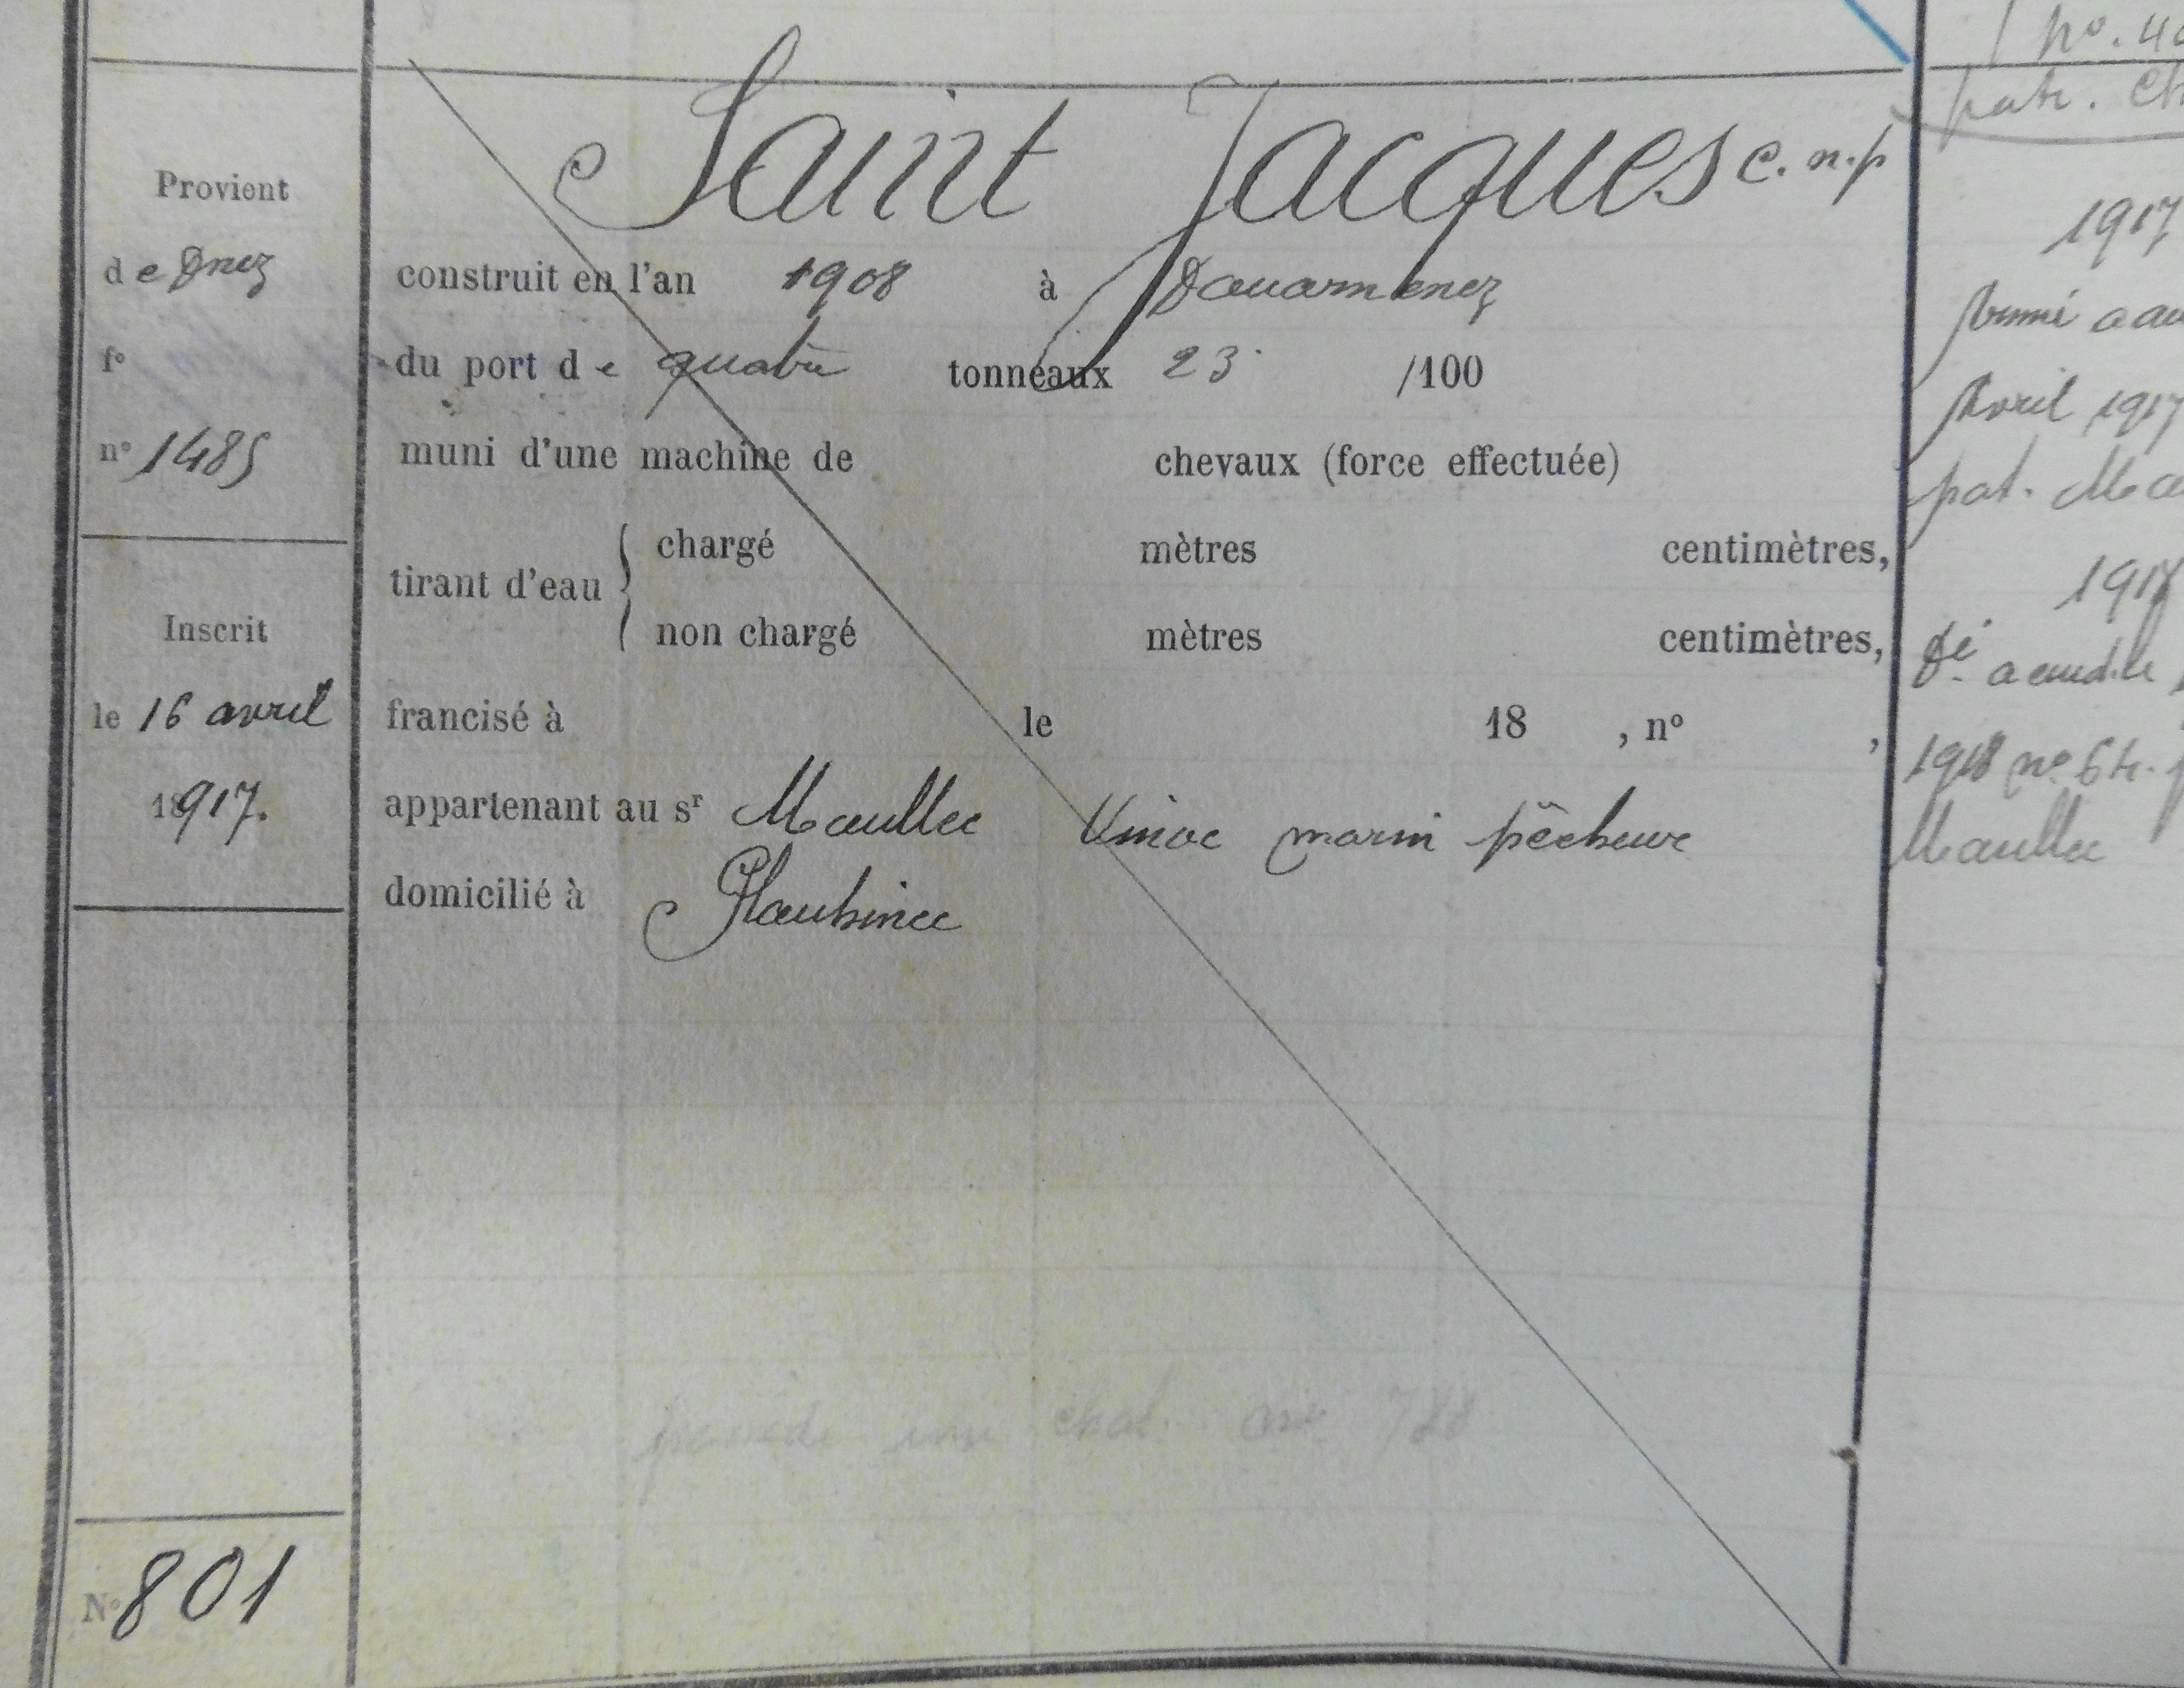 Provient
de Dnez
fº
nº 1485
Inscrit
le 16 avril
1917.
Nº 801
Saint Jacques c. n. p
construit en l'an 1908 à Douarnenez
du port de quatre tonneaux 23 /100
muni d'une machine de chevaux (force effectuée)
tirant d'eau { chargé mètres centimètres,
non chargé mètres centimètres,
francisé à le 18 , nº ,
appartenant au sr Maullec Vinoc marin pêcheur
domicilié à Plouhinec
une chal.
nº. 40
patr. Ch
1917
Armé a au
Avril 1917
pat. Ma
1918
Dé a aud.
1918 nº 64.
Maullec